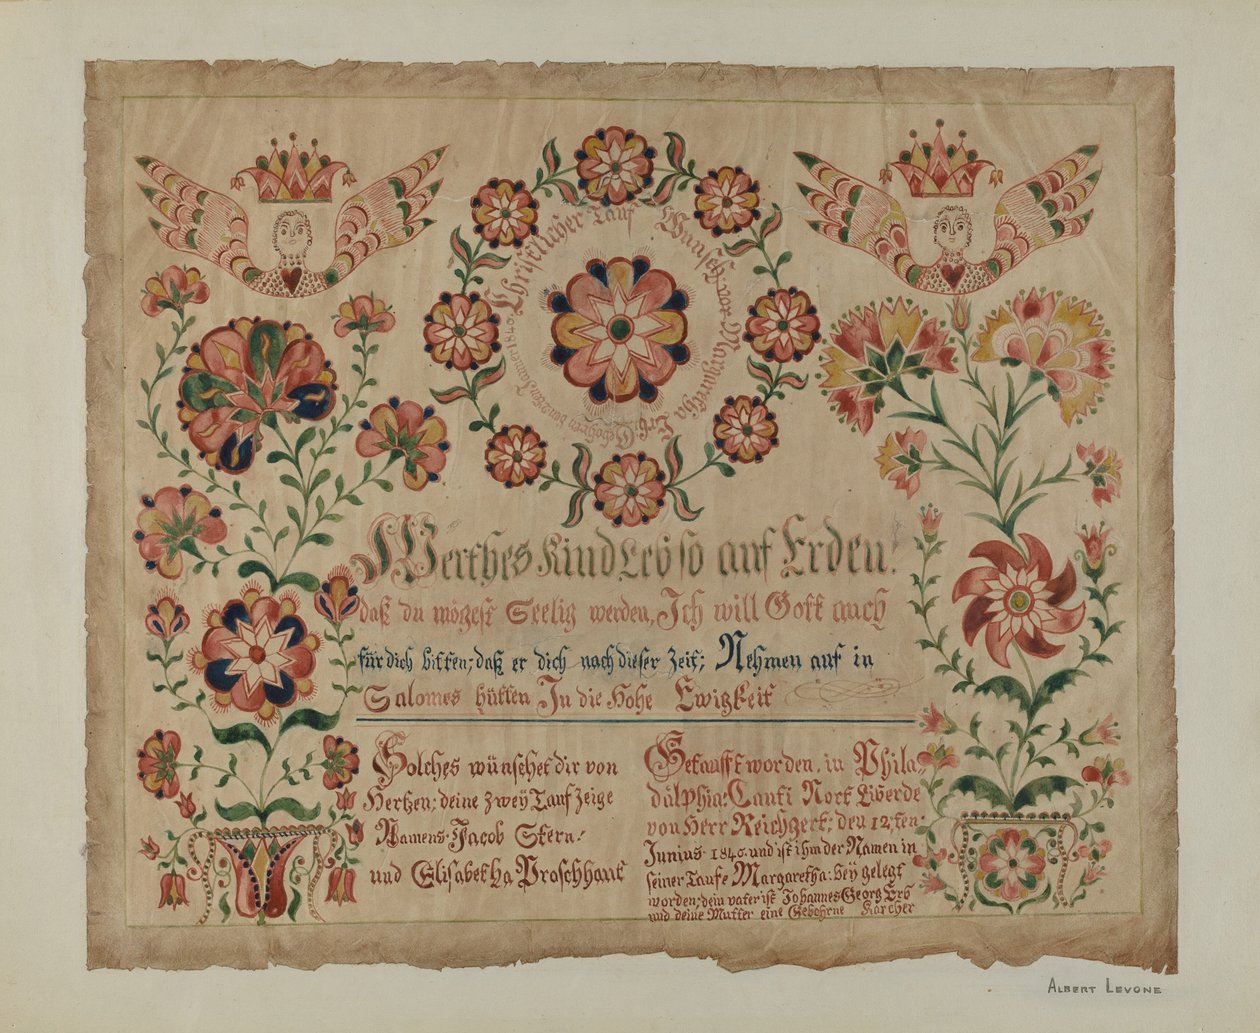 Christlicher Tauf Wunsch, vor Margaretha Erb Gebohren den 2ten Janner 1840.
Werthes Kind Leb so auf Erden!
daß du mögest Seelig werden, Ich will Gott auch
für dich bitten; daß er dich nach dieser Zeit; Nehmen auf in
Salomes hütten In die Hohe Ewigkeit
Solches wünschet dir von
Hertzen; deine zweÿ Tauf Zeige
Namens Jacob Stern!
und Elisabetha Proschhaut
Getaufft worden, in Phila=
dälphia: Caufi Nort Liberde
von Herr Reichgert; den 12,ten
Junius 1840. und ist ihm der Namen in
seiner Taufe Margaretha: beÿ gelegt
worden; dein vater ist Johannes Georg Erb
und deine Mutter eine Gebohrne Karcher
ALBERT LEVONE